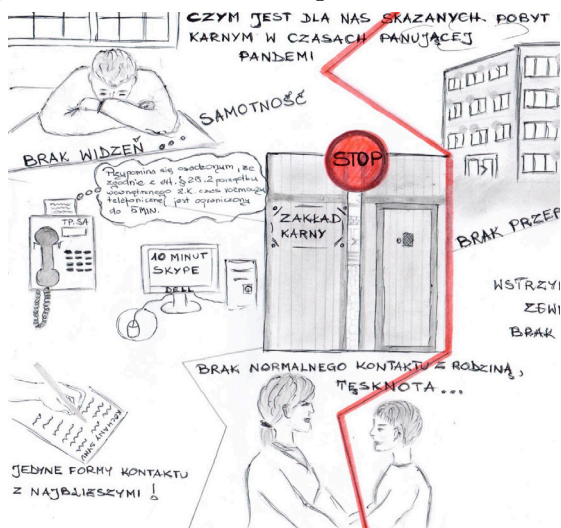 CZYM JEST DLA NAS SKAZANYCH POBYT
KARNYM W CZASACH PANUJĄCEJ
PANDEMI
SAMOTNOŚĆ
BRAK WIDZEŃ
STOP
Przypomina się osadzonym, że
zgodnie z art. § 28.2 porządku
wewnętrznego Z.K. czas rozmowy
telefonicznej jest ograniczony
do 5 MIN.
TP.SA
ZAKŁAD
KARNY
10 MINUT
SKYPE
DELL
BRAK PRZEP
WSTRZY
ZEW
BRAK
BRAK NORMALNEGO KONTAKTU Z RODZINĄ,
TĘSKNOTA...
KOCHANY SYNU
JEDYNE FORMY KONTAKTU
Z NAJBLIŻSZYMI!